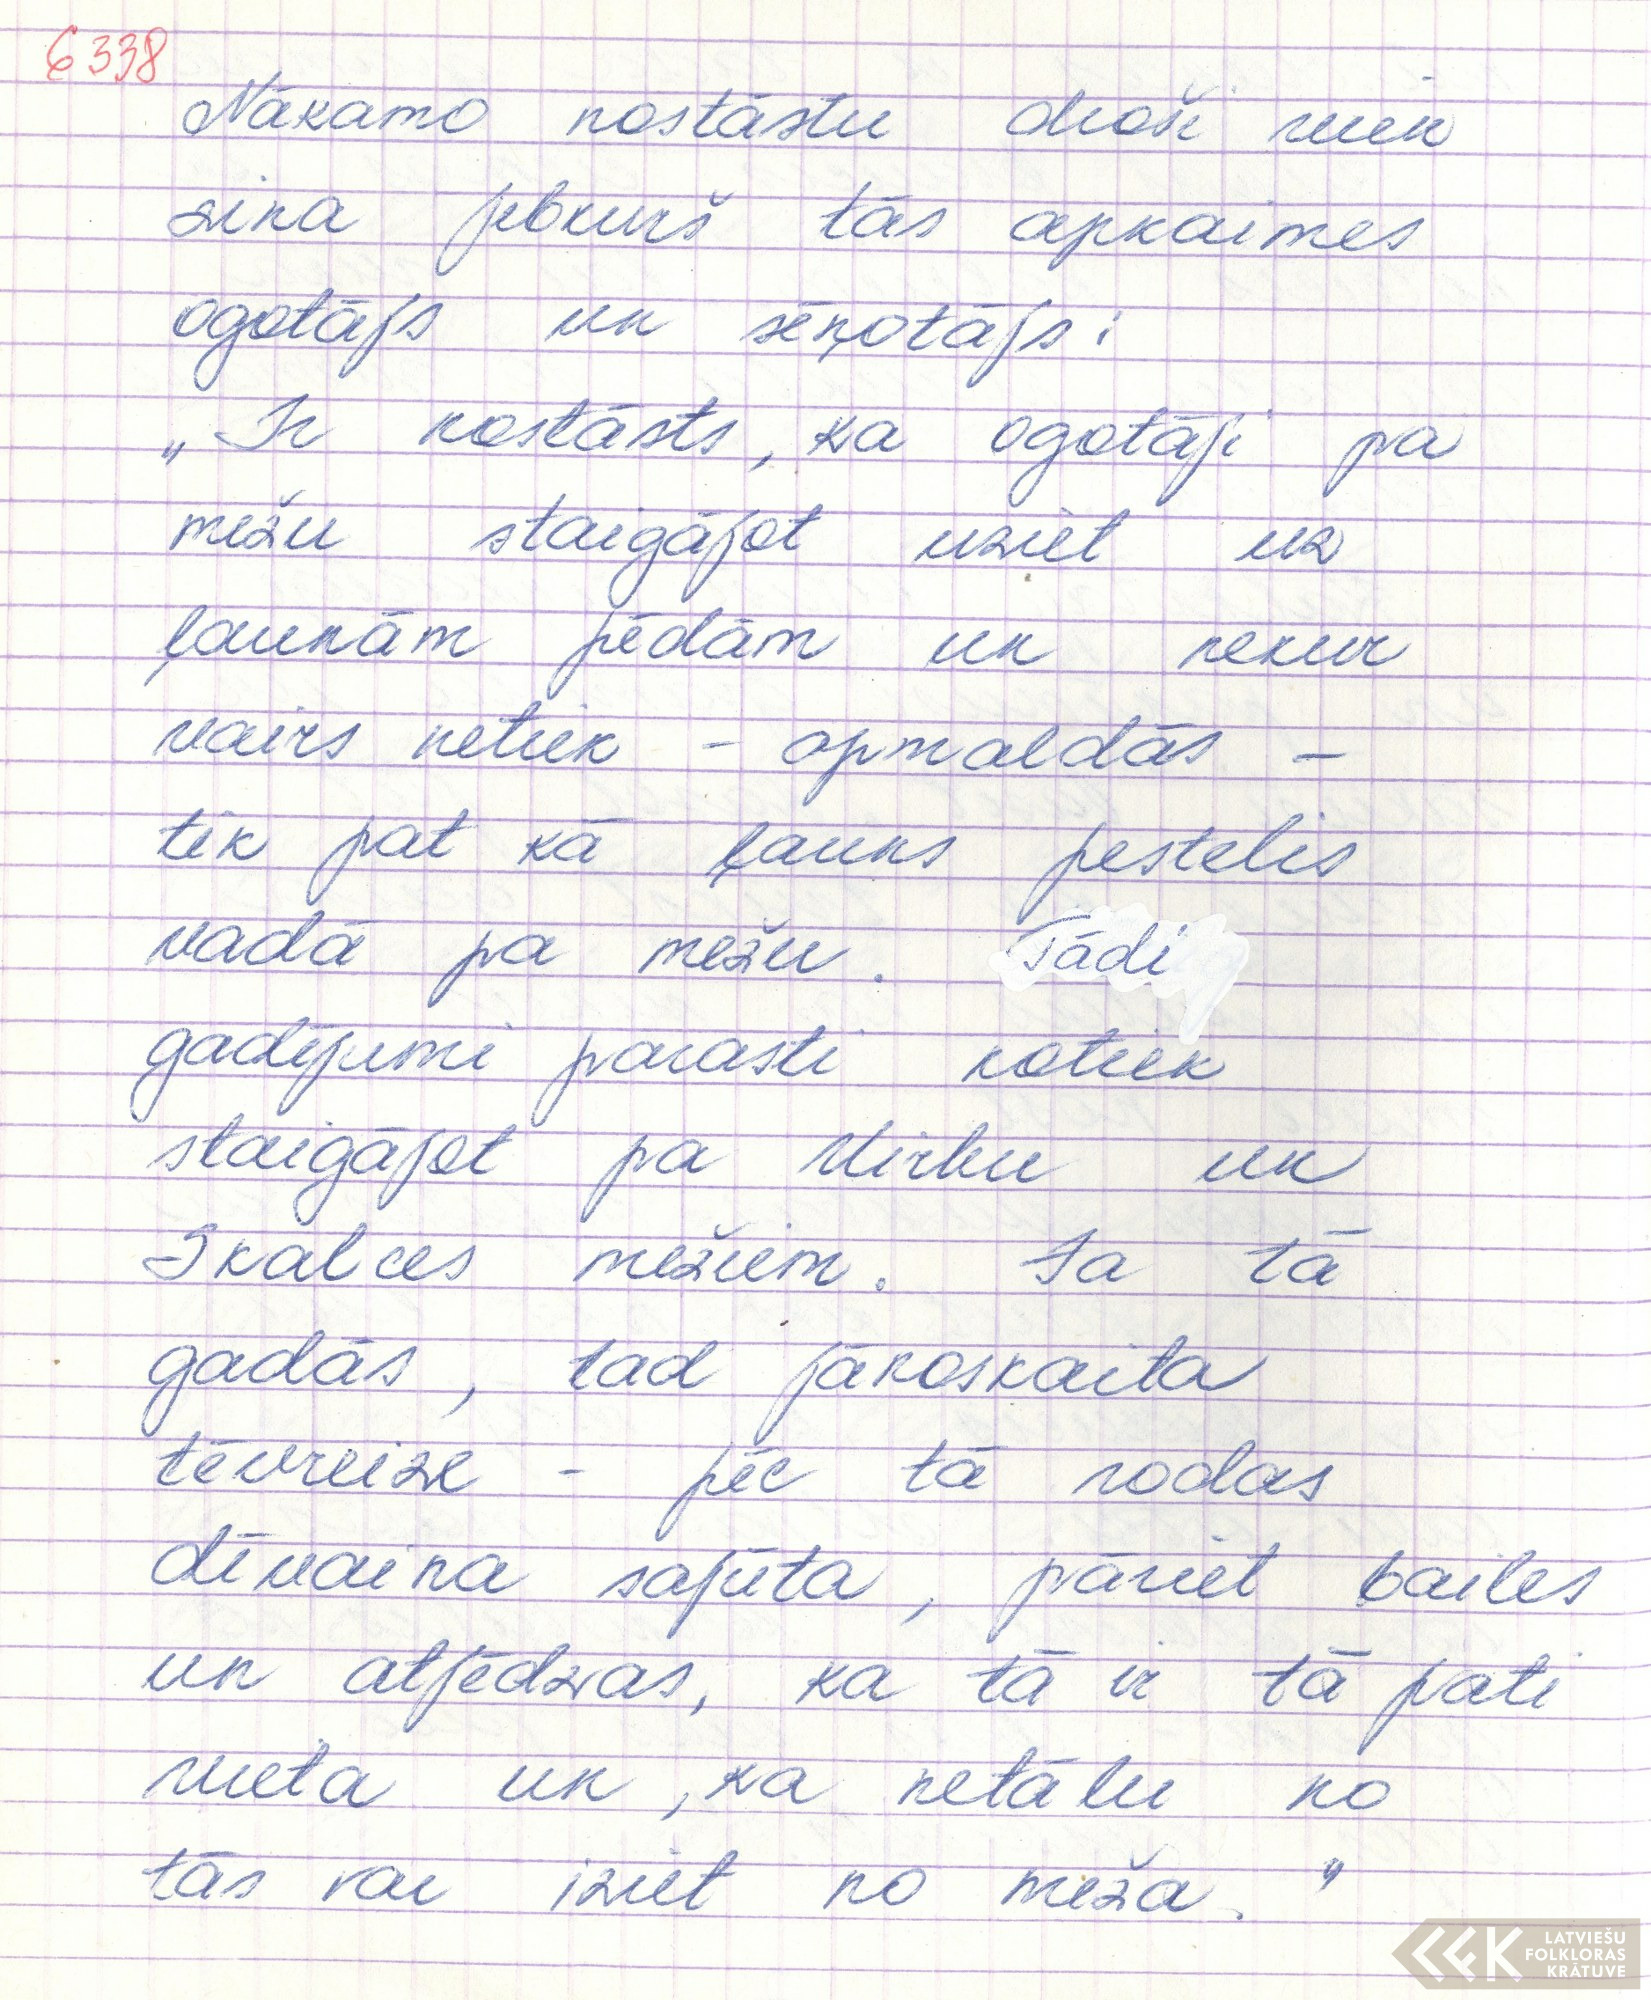 6338
Nākamo nostāstu droši vien
zina jebkurš tās apkaimes
ogotājs un sēņotājs:
„Ir nostāsts, ka ogotāji pa
mežu staigājot uziet uz
ļaunām pēdām un nekur
vairs netiek - apmaldās -
tik pat kā ļauns pestelis
vadā pa mežu. Tādi
gadījumi parasti notiek
staigājot pa Virbu un
Skalces mežiem. Ja tā
gadās, tad jānoskaita
tēvreize - pēc tā rodas
dīvaina sajūta, pāriet bailes
un atjēdzas, ka tā ir tā pati
vieta un, ka netālu no
tās var iziet no meža."
LATVIEŠU
FOLKLORAS
KRĀTUVE